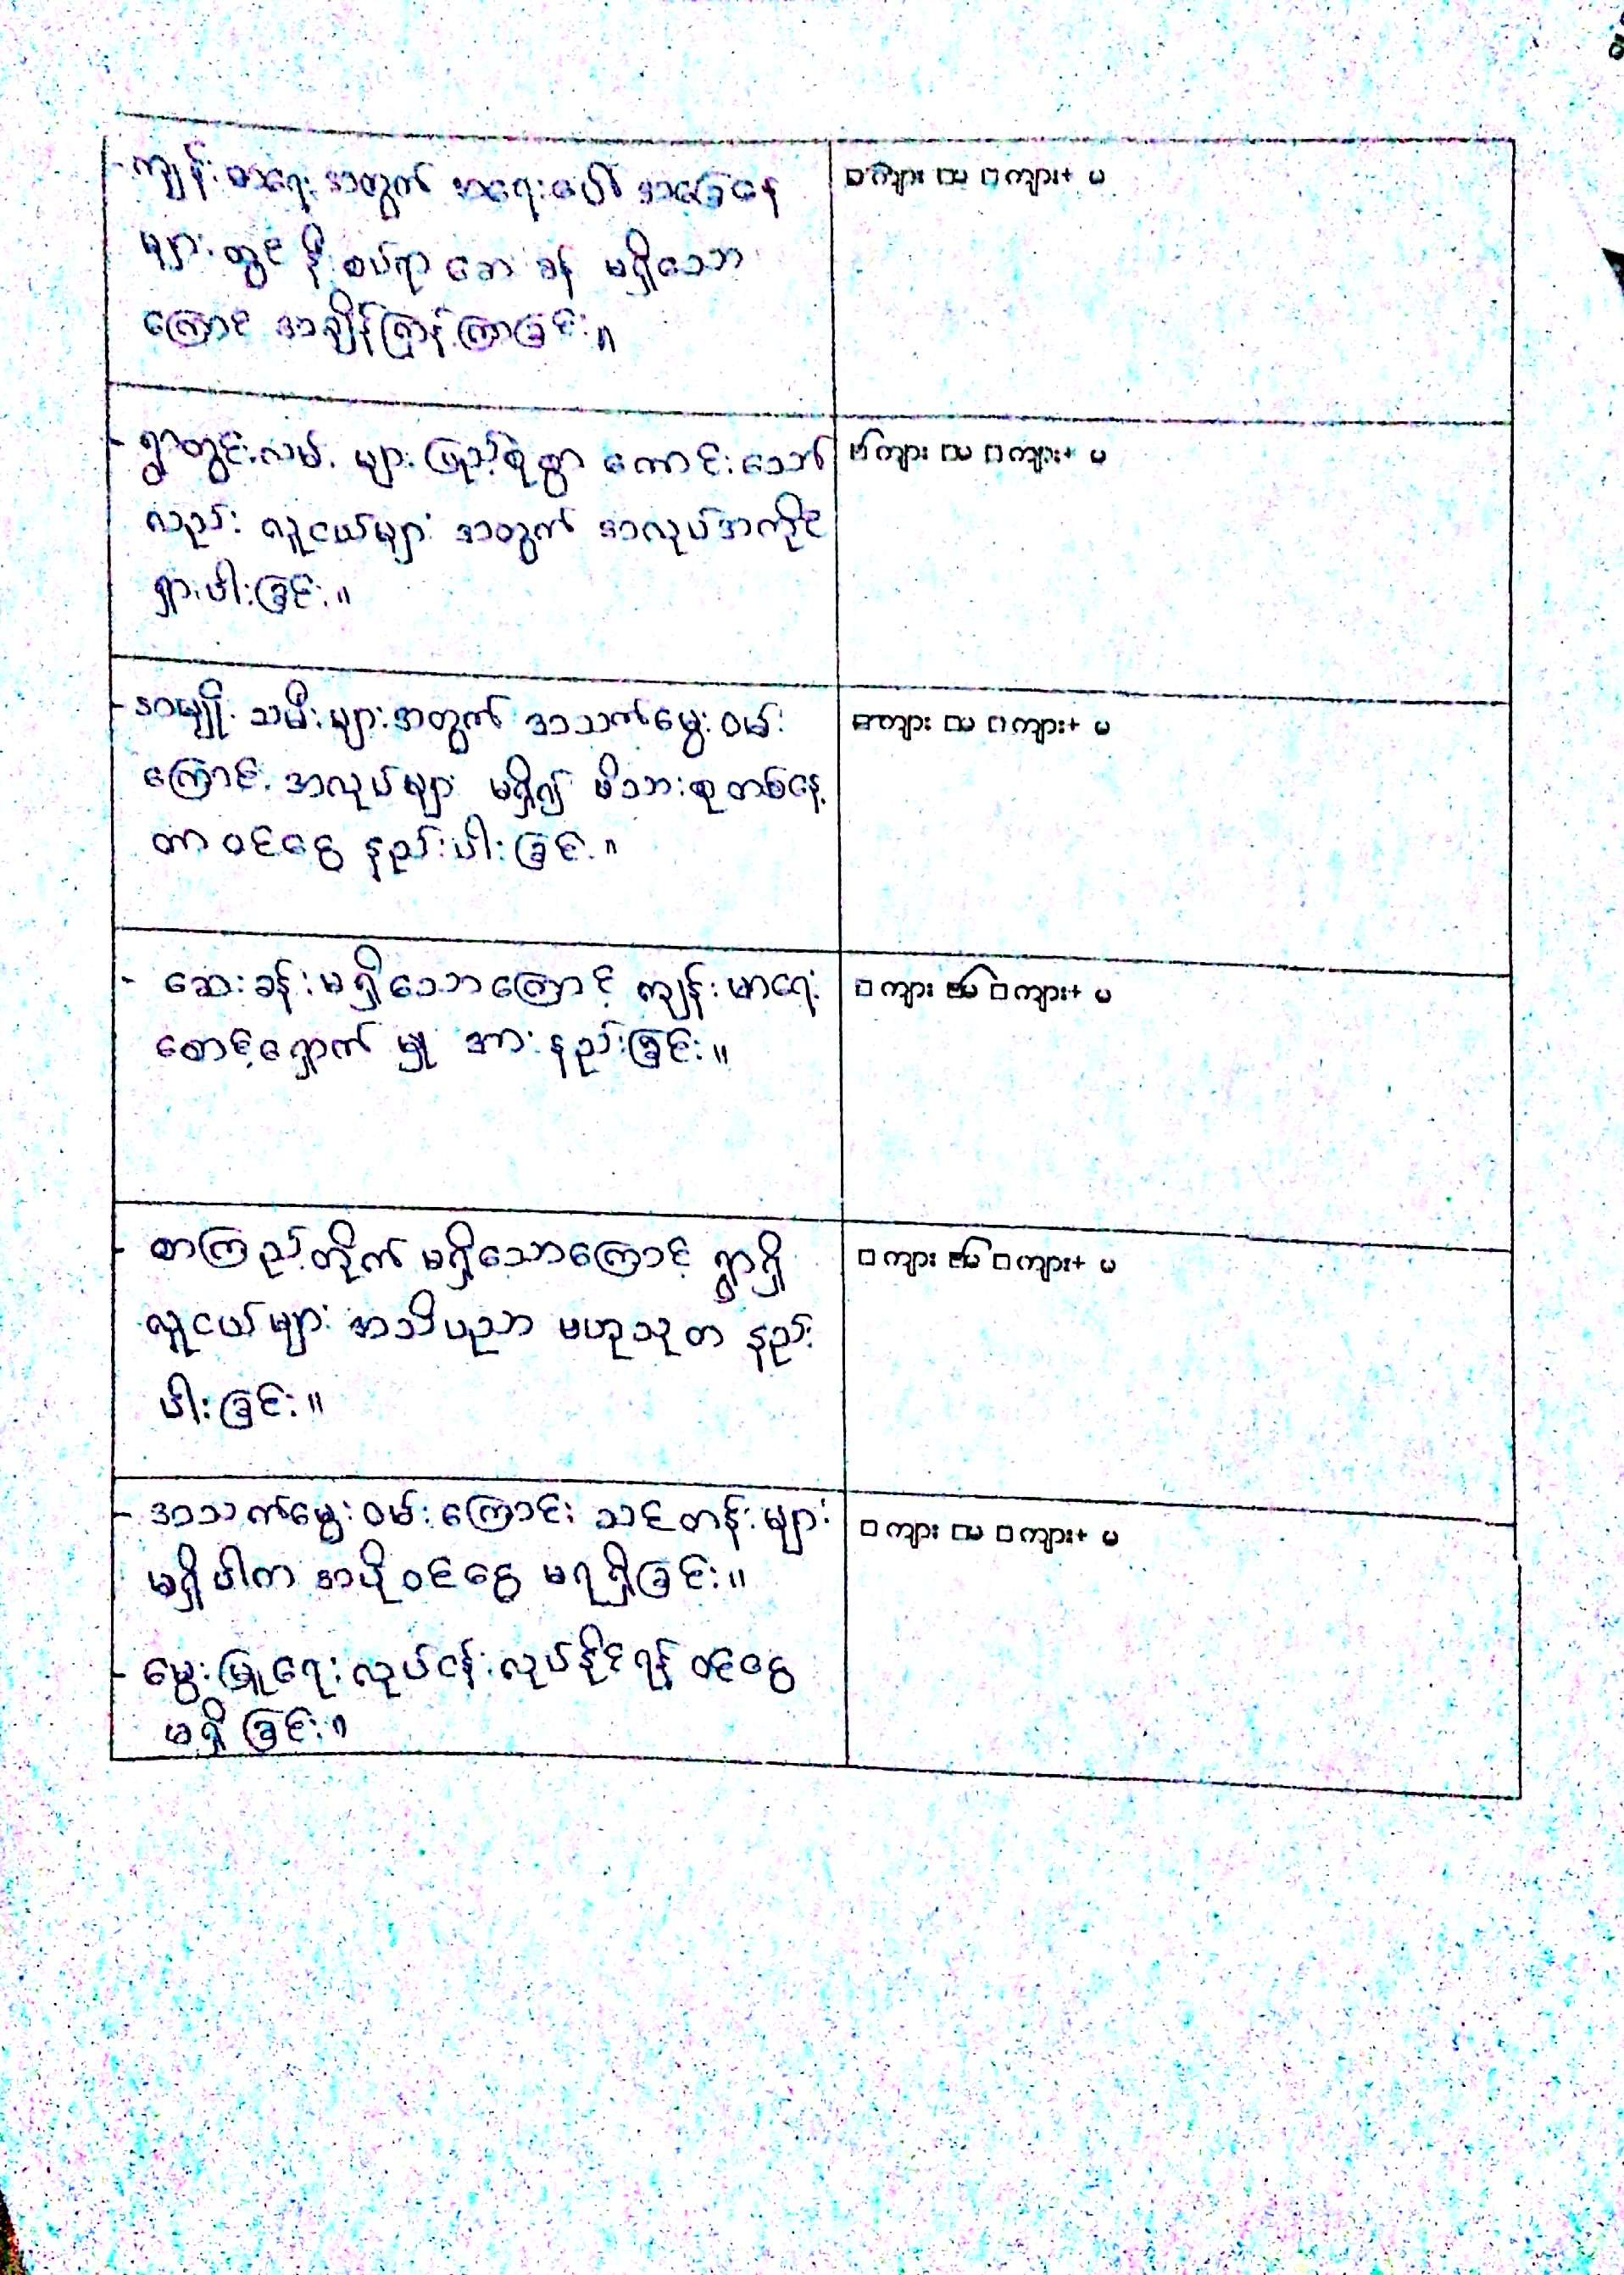 - ကျန်းမာရေး အတွက် အရေးပေါ် အခြေနေ
များတွင် နီးစပ်ရာ ဆေးခန်း မရှိသော
ကြောင့် အချိန်ကြန့်ကြာခြင်း။
□ ကျား □ မ □ ကျား+ မ
- ရွာတွင်းလမ်းများ ပြည့်စုံစွာ ကောင်းသော်
လည်း လူငယ်များ အတွက် အလုပ်အကိုင်
ရှားပါးခြင်း။
□ ကျား □ မ □ ကျား+ မ
- အမျိုးသမီးများအတွက် အသက်မွေးဝမ်း
ကြောင်းအလုပ်များ မရှိ၍ မိသားစုတစ်နေ့
တာ ဝင်ငွေ နည်းပါးခြင်း။
□ ကျား □ မ □ ကျား+ မ
- ဆေးခန်းမရှိသောကြောင့် ကျန်းမာရေး
စောင့်ရှောက်မှု အားနည်းခြင်း။
□ ကျား □ မ □ ကျား+ မ
- စာကြည့်တိုက် မရှိသောကြောင့် ရွာရှိ
လူငယ်များ အသိပညာ ဗဟုသုတ နည်း
ပါးခြင်း။
□ ကျား □ မ □ ကျား+ မ
- အသက်မွေးဝမ်းကြောင်း သင်တန်းများ
မရှိပါက အပိုဝင်ငွေ မရရှိခြင်း။
□ ကျား □ မ □ ကျား+ မ
- မွေးမြူရေးလုပ်ငန်းလုပ်နိုင်ရန် ဝင်ငွေ
မရှိခြင်း။